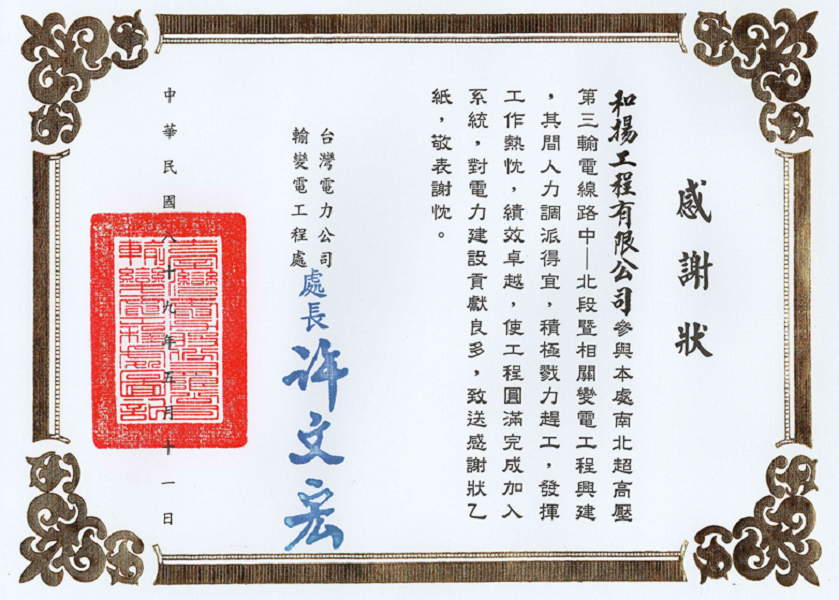 感謝狀
和揚工程有限公司參與本處南北超高壓
第三輸電線路中—北段暨相關變電工程興建
，其間人力調派得宜，積極戮力趕工，發揮
工作熱忱，績效卓越，使工程圓滿完成加入
系統，對電力建設貢獻良多，致送感謝狀乙
紙，敬表謝忱。
台灣電力公司
輸變電工程處
處長許文宏
中華民國八十九年五月十一日